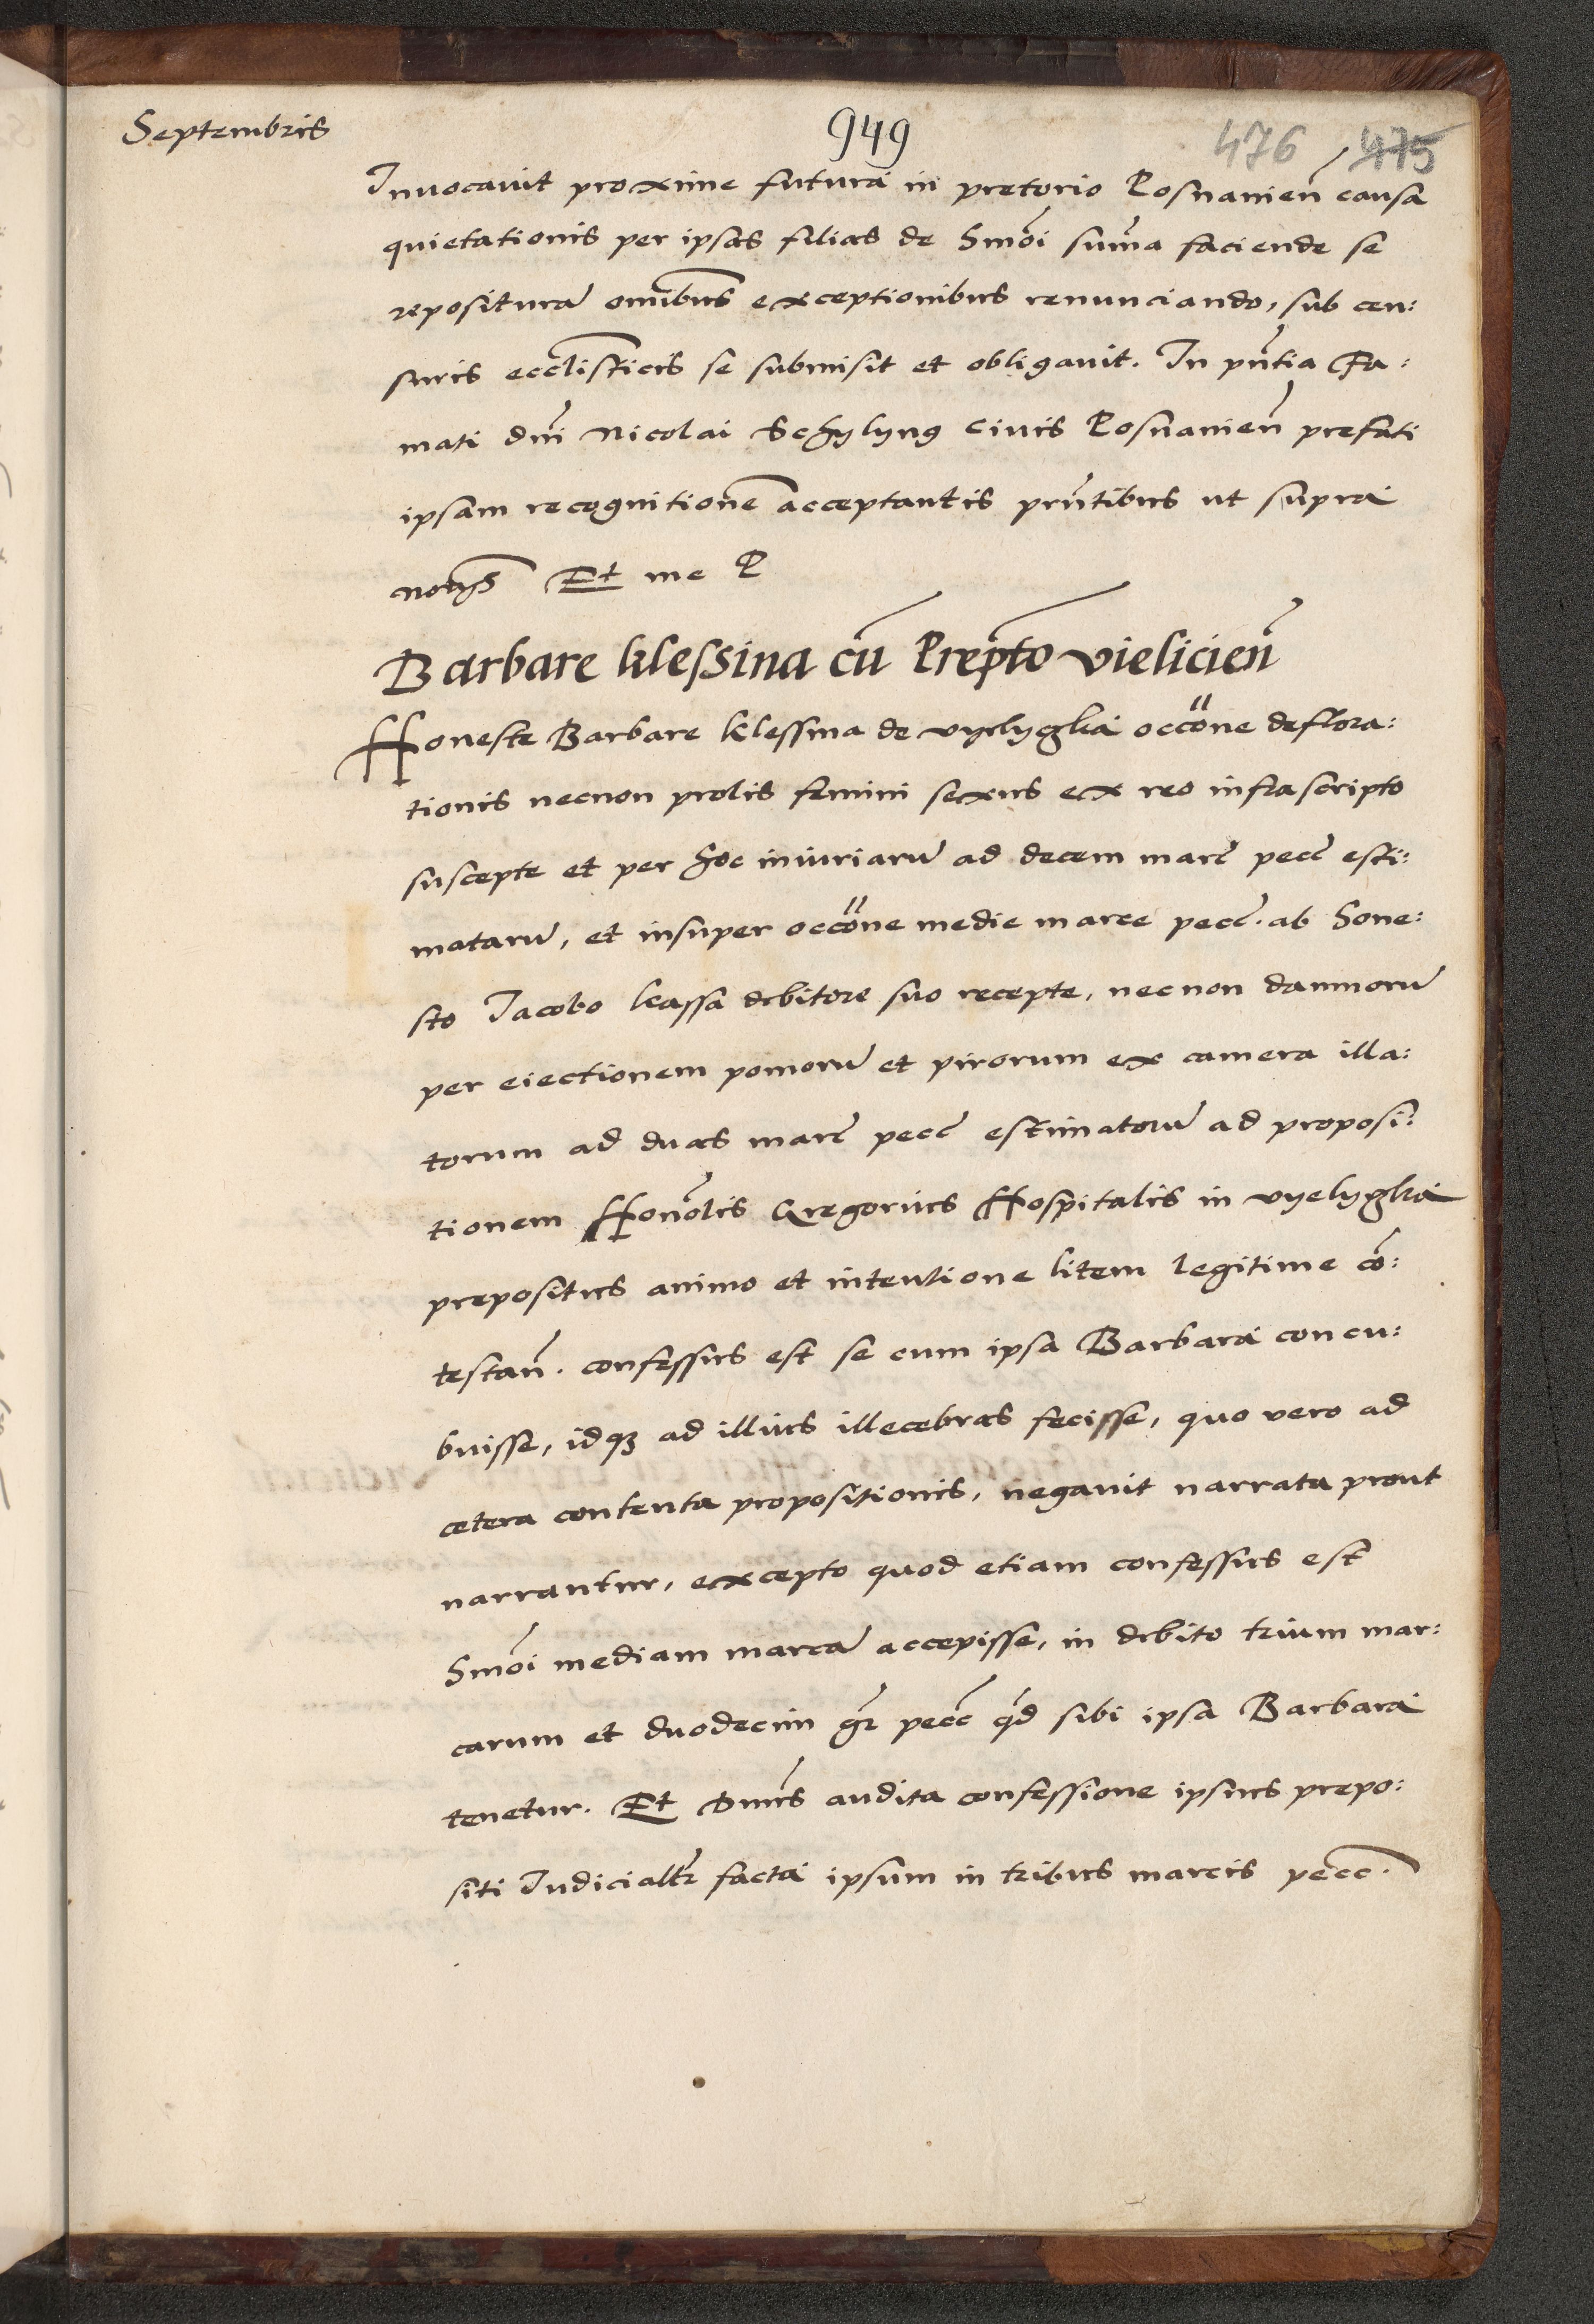 Septembris
949
476 475
Inuocauit proxime futura in pretorio Posnanien̄ causa
quietationis per ipsas filias de hmōi sum̄a faciende se
repositurā omībus exceptionibus renunciando, sub cen:
suris eccl̄isticis se submisit et obligauit. In pn̄tia Fa:
mati dn̄i Nicolai Schylyng Ciuis Posnanien̄ prefati
ipsam recognitionē acceptantis prn̄tibus ut supra
notijs Et me P
Barbare klessina cū Prep̄to vielicien̄
Honeste Barbare klessina de vyelyglką occōne deflora:
tionis necnon prolis femini sexus ex reo infrascripto
suscepte et per hoc iniuriarū ad decem marc̄ pecc̄ esti:
matarū, et insuper occōne medie marce pecc̄. ab hone:
sto Jacobo kassa debitore suo recepte, necnon damnorū
per eiectionem pomorū et pirorum ex camera illa:
torum ad duas marc̄ pecc̄ estimatorū ad proposi:
tionem Honōlis Gregorius Hospitalis in vyelyglka
prepositus animo et intentione litem legitime cō:
testan̄. confessus est se cum ipsa Barbara concu:
buisse, idqꝫ ad illius illecebras fecisse, quo vero ad
cetera contenta propositionis, negauit narrata prout
narrantur, excepto quod etiam confessus est
hmōi mediam marcā accepisse, in debito trium mar:
carum et duodecim gr̄ pecc̄ qd̄ sibi ipsa Barbara
tenetur. Et Dn̄us audita confessione ipsius prepo:
siti Judicialr̄ facta ipsum in tribus marcis pecc̄.